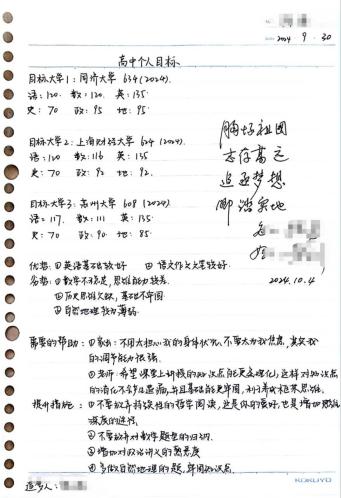 2024 · 9 · 30
高中个人目标
目标大学1：同济大学 634(2024).
语：120. 数：120. 英：135
史：70 政：95 地：95
目标大学2：上海财经大学 624 (2024).
语：120 数：116 英：135
史：70 政：92 地：92.
目标大学3：苏州大学 608 (2024)
语：117. 数：111 英：135
史：70 政：90 地：85
胸怀祖国
志存高远
追逐梦想
脚踏实地
2024.10.4
优势：①英语基础较好 ②语文作文文笔较好
劣势：①数学不稳定，思维能力较差
②历史思维欠缺，基础不牢固
③自然地理较为薄弱
需要的帮助：①家长：不用太担心我的身体状况，不要太为我焦虑，其实我
的调节能力很强.
②老师：希望课堂上讲授的知识点能更条理化，这样对知识点
的消化不会有遗漏，并且基础能更牢固，利于养成框架思维.
提升措施：①不要放弃持续性的哲学阅读，这是你的爱好，也是增加思维
深度的途径.
②不要放弃对数学题型的归纳
③增加对政治讲义的熟悉度
④多做自然地理的题，牢固知识点
追梦人：
KOKUYO